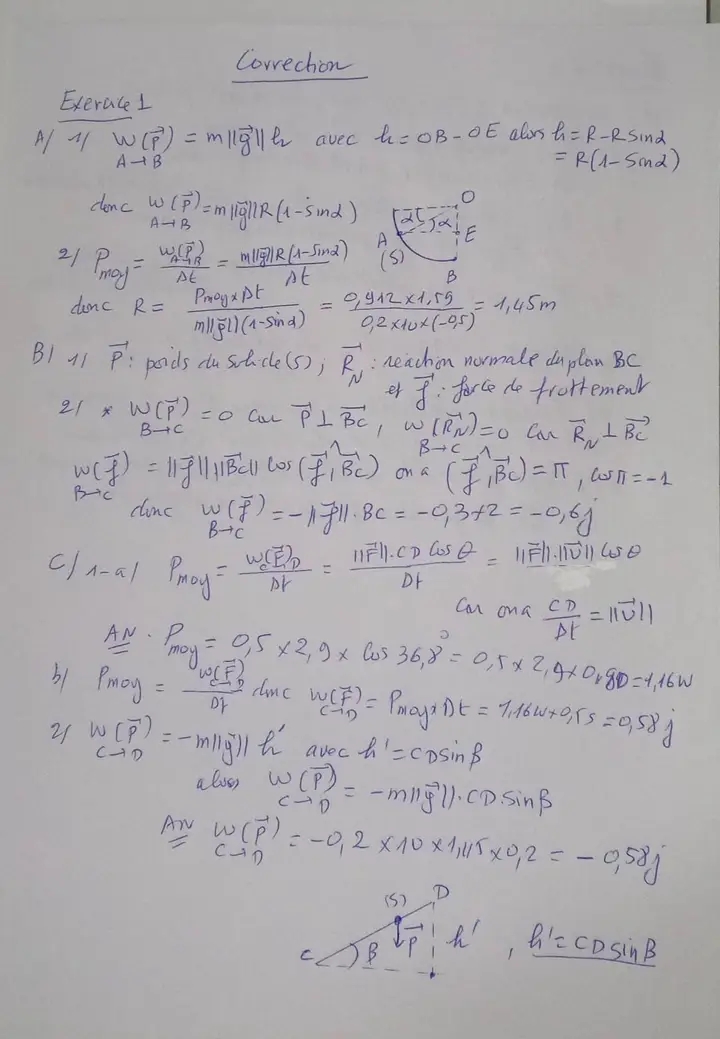 Correction
Exercice 1
A/ 1/ W(P⃗) A→B = m||g⃗||h avec h = OB - OE alors h = R - R sinα
= R(1 - sinα)
donc W(P⃗) A→B = m||g⃗||R(1 - sinα)
O
α α
A E
(S)
B
2/ Pmoy = W(P⃗) A→B / Δt = m||g⃗||R(1 - sinα) / Δt
donc R = Pmoy × Δt / m||g⃗||(1 - sinα) = 0,912 × 1,59 / 0,2 × 10 × (-0,5) = 1,45 m
B/ 1/ P⃗ : poids du solide (S) ; R⃗N : réaction normale du plan BC
et f⃗ : force de frottement
2/ * W(P⃗) B→C = 0 car P⃗ ⊥ BC⃗, W(R⃗N) B→C = 0 car R⃗N ⊥ BC⃗
W(f⃗) B→C = ||f⃗|| ||BC⃗|| cos(f⃗, BC⃗) on a (f⃗, BC⃗) = π, cosπ = -1
donc W(f⃗) B→C = -||f⃗||. BC = -0,3 × 2 = -0,6 j
C/ 1-a/ Pmoy = W(F⃗) C→D / Δt = ||F⃗||. CD cos θ / Δt = ||F⃗||.||v⃗|| cos θ
car on a CD / Δt = ||v⃗||
AN . Pmoy = 0,5 × 2,9 × cos 36,8° = 0,5 × 2,9 × 0,80 = 1,16 W
b/ Pmoy = W(F⃗) C→D / Δt donc W(F⃗) C→D = Pmoy × Δt = 1,16 W × 0,5 s = 0,58 j
2/ W(P⃗) C→D = -m||g⃗|| h' avec h' = CD sin β
alors W(P⃗) C→D = -m||g⃗||. CD. sin β
AN W(P⃗) C→D = -0,2 × 10 × 1,45 × 0,2 = -0,58 j
(S) D
C β P⃗ h' , h' = CD sin β